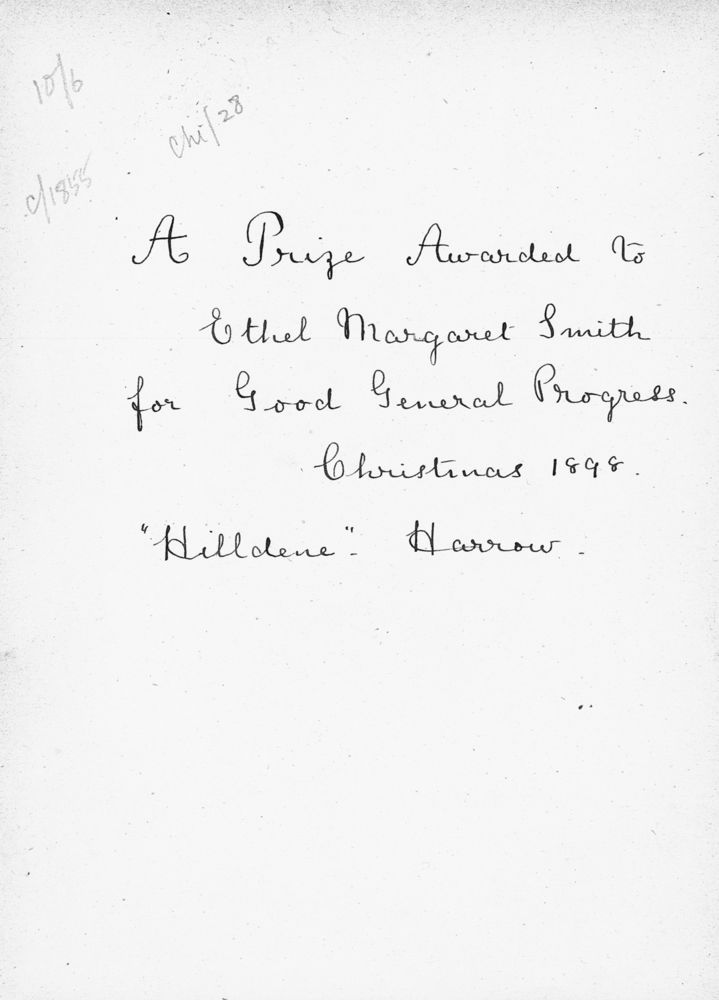 10/6
Chi/28
c/1855
A Prize Awarded to
Ethel Margaret Smith
for Good General Progress.
Christmas 1898.
"Hilldene". Harrow.